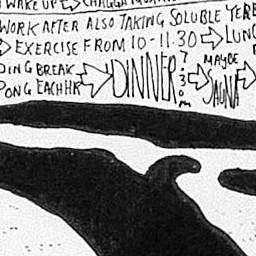 WAKE UP ⇨ CHAGGA
WORK AFTER ALSO TAKING SOLUBLE YERB
⇨ EXERCISE FROM 10-11.30 ⇨ LUNC
DING BREAK ⇨ DINNER 7:30pm ⇨ MAYBE SAUNA ⇨
PONG EACH HR